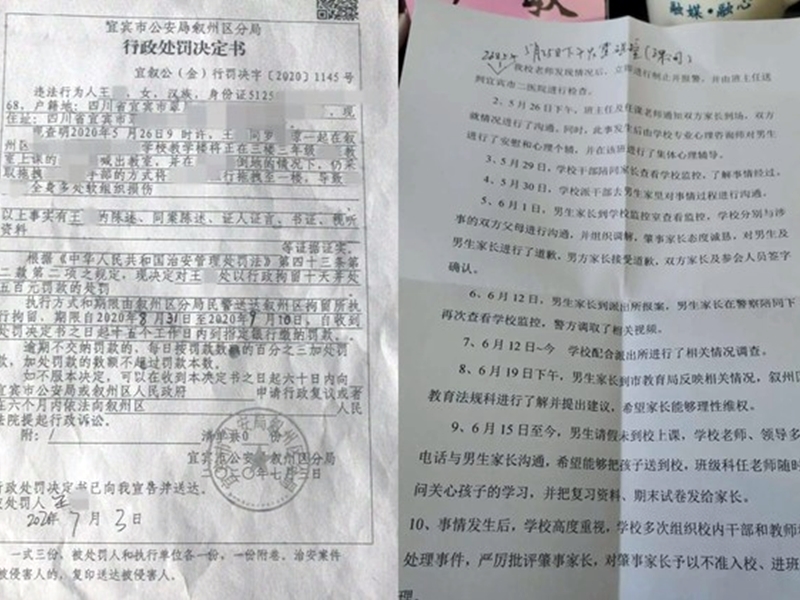 宜宾市公安局叙州区分局
行政处罚决定书
宜叙公(金)行罚决字〔2020〕1145号
违法行为人王 ,女,汉族,身份证5125
68。户籍地:四川省宜宾市 ,现
住址:四川省宜宾市
现查明2020年5月26日9时许,王 同罗 一起在叙
州区 学校教学楼将正在三楼三年级 教
室上课的 喊出教室,并在 倒地的情况下,仍采
取拖拽 手部的方式将 行拖拽至一楼,导致
全身多处软组织损伤
以上事实有王 的陈述、同案陈述、证人证言、书证、视听
资料
等证据证实。
根据《中华人民共和国治安管理处罚法》第四十三条第
二款第二项之规定,现决定对王 处以行政拘留十天并处
五百元罚款的处罚
执行方式和期限由叙州区分局民警送达叙州区拘留所执
行拘留,期限自2020年8月31日至2020年9月10日,自收到
处罚决定书之日起十五个工作日内到指定银行缴纳罚款。
逾期不交纳罚款的,每日按罚款数额的百分之三加处罚
款,加处罚款的数额不超过罚款本数。
如不服本决定,可以在收到本决定书之日起六十日内向
宜宾市公安局或叙州区人民政府 申请行政复议或者
在六个月内依法向叙州区 人民
法院提起行政诉讼。
附: 清单表0 份
宜宾市公安局叙州区分局
二〇二〇年七月三日
行政处罚决定书已向我宣告并送达。
被处罚人 王
2020年 7月3日
一式三份,被处罚人和执行单位各一份,一份附卷。治安案件
被侵害人的,复印送达被侵害人。
融媒·融心
5月25日下午
我校老师发现情况后,立即进行制止并报警,并由班主任送
到宜宾市二医院进行检查。
2、5月26日下午,班主任及任课老师通知双方家长到场,双方
就情况进行了沟通。同时,此事发生后由学校专业心理咨询师对男生
进行了安慰和心理个辅,并在该班进行了集体心理辅导。
3、5月29日,学校干部陪同家长查看学校监控,了解事情经过。
4、5月30日,学校派干部去男生家里对事情过程进行沟通。
5、6月1日,男生家长到学校监控室查看监控,学校分别与涉
事的双方父母进行沟通,并组织调解,肇事家长态度诚恳,对男生及
男生家长进行了道歉,男方家长接受道歉,双方家长及参会人员签字
确认。
6、6月12日,男生家长到派出所报案,男生家长在警察陪同下
再次查看学校监控,警方调取了相关视频。
7、6月12日~今 学校配合派出所进行了相关情况调查。
8、6月19日下午,男生家长到市教育局反映相关情况,叙州区
教育法规科进行了解并提出建议,希望家长能够理性维权。
9、6月15日至今,男生请假未到校上课,学校老师、领导多
电话与男生家长沟通,希望能够把孩子送到校,班级科任老师随时
问关心孩子的学习,并把复习资料、期末试卷发给家长。
10、事情发生后,学校高度重视,学校多次组织校内干部和教师
处理事件,严厉批评肇事家长,对肇事家长予以不准入校、进班
理。